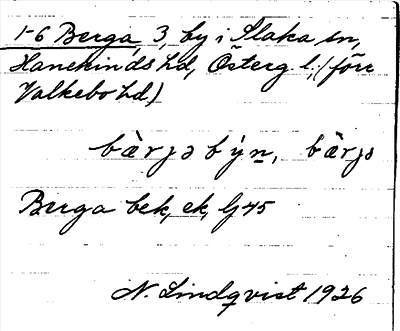 1-6 Berga 3, by i Slaka sn,
Hanekinds hd, Österg. l., (förr
Valkebo hd)
bàrjə býn, bàrjə
Berga bek, ek, Gj 45
N. Lindqvist 1926